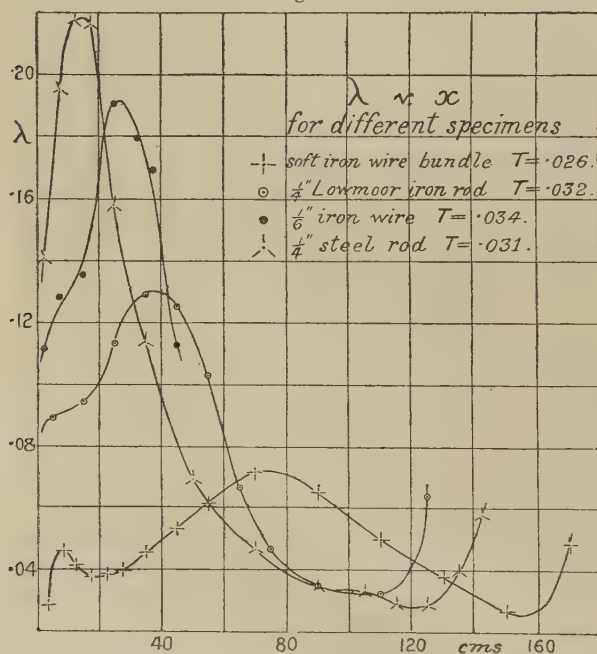 λ v. x
for different specimens
soft iron wire bundle T=·026.
1/4" Lowmoor iron rod T=·032.
1/6" iron wire T=·034.
1/4" steel rod T=·031.
·20
λ
·16
·12
·08
·04
40 80 120 cms 160